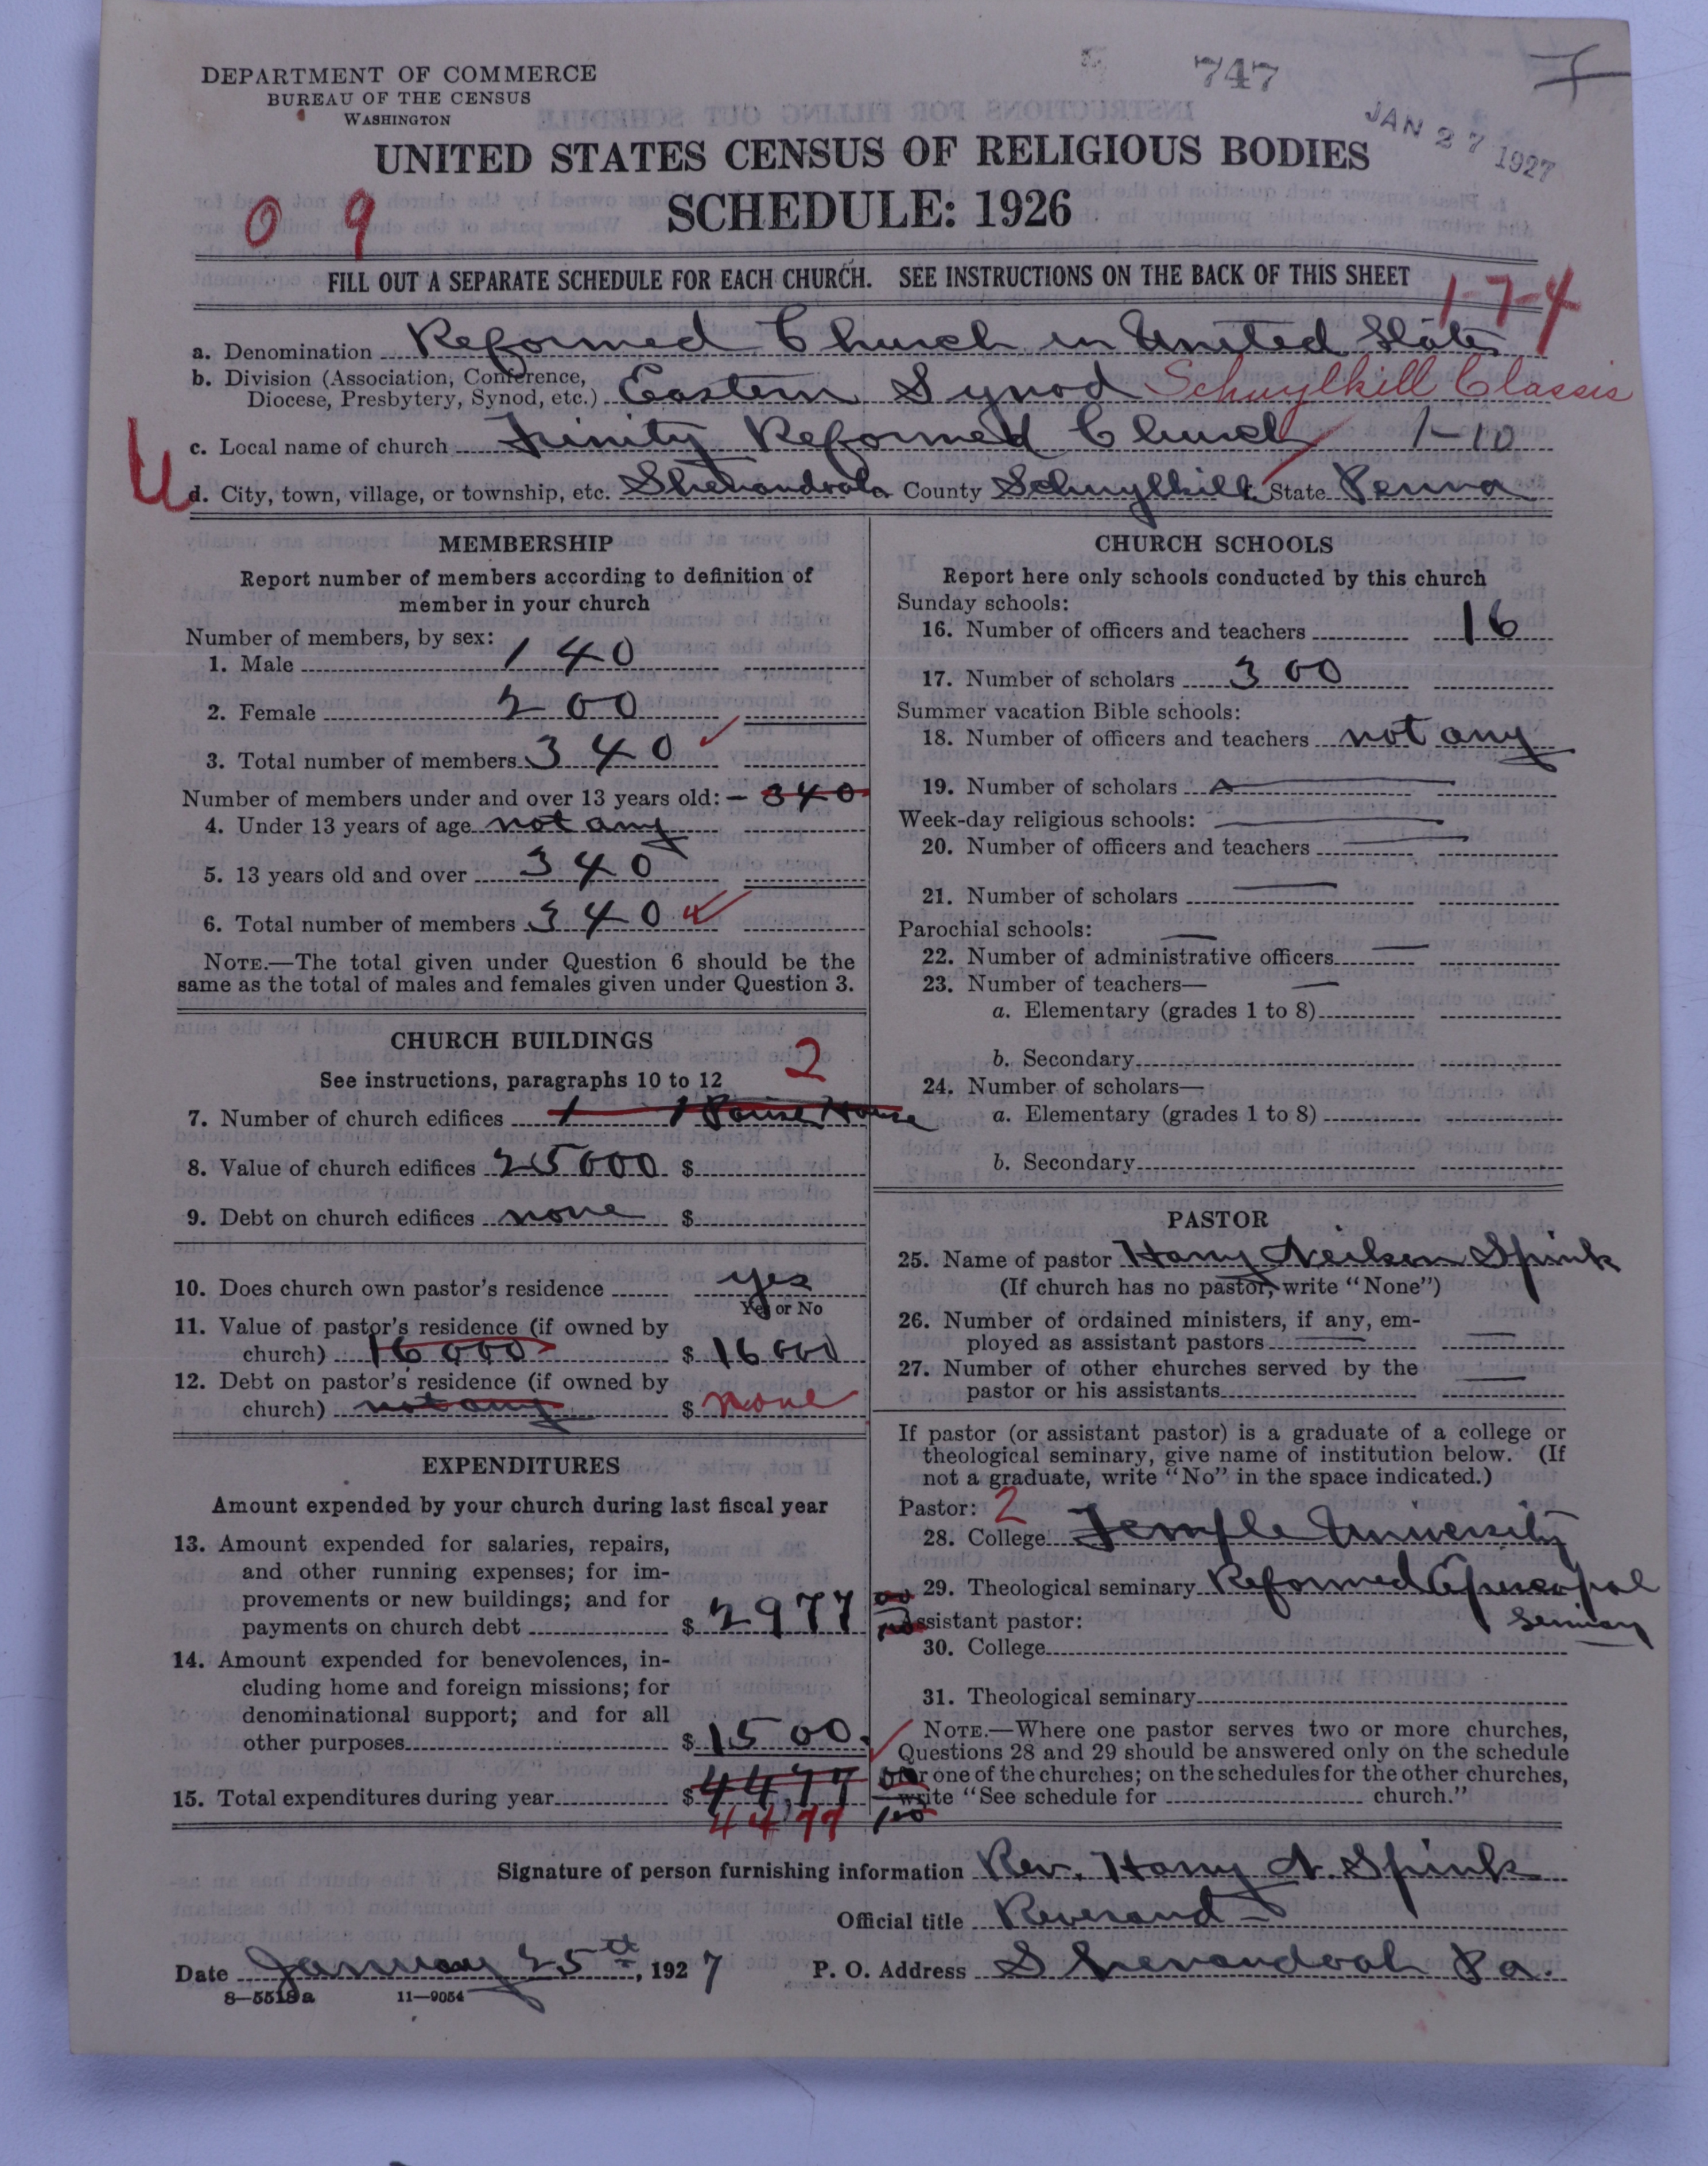 DEPARTMENT OF COMMERCE
BUREAU OF THE CENSUS
WASHINGTON
747
JAN 27 1927
UNITED STATES CENSUS OF RELIGIOUS BODIES
SCHEDULE: 1926
0 9
FILL OUT A SEPARATE SCHEDULE FOR EACH CHURCH. SEE INSTRUCTIONS ON THE BACK OF THIS SHEET
1-7-4
a. Denomination Reformed Church in United States
b. Division (Association, Conference,
Diocese, Presbytery, Synod, etc.) Eastern Synod Schuylkill Classis
c. Local name of church Trinity Reformed Church 1-10
d. City, town, village, or township, etc. Shenandoah County Schuylkill State Penna
MEMBERSHIP
Report number of members according to definition of
member in your church
Number of members, by sex:
1. Male 140
2. Female 200
3. Total number of members 340
Number of members under and over 13 years old: - 340
4. Under 13 years of age not any
5. 13 years old and over 340
6. Total number of members 340
NOTE.—The total given under Question 6 should be the
same as the total of males and females given under Question 3.
CHURCH BUILDINGS
See instructions, paragraphs 10 to 12 2
7. Number of church edifices 1 1 House
8. Value of church edifices 25000 $
9. Debt on church edifices none $
10. Does church own pastor's residence yes
Yes or No
11. Value of pastor's residence (if owned by
church) 16000 $ 16000
12. Debt on pastor's residence (if owned by
church) not any $ none
EXPENDITURES
Amount expended by your church during last fiscal year
13. Amount expended for salaries, repairs,
and other running expenses; for im-
provements or new buildings; and for
payments on church debt $ 2977 00/100
14. Amount expended for benevolences, in-
cluding home and foreign missions; for
denominational support; and for all
other purposes $ 1500.
15. Total expenditures during year $ 4477 00/100
4477
CHURCH SCHOOLS
Report here only schools conducted by this church
Sunday schools:
16. Number of officers and teachers 16
17. Number of scholars 300
Summer vacation Bible schools:
18. Number of officers and teachers not any
19. Number of scholars
Week-day religious schools:
20. Number of officers and teachers
21. Number of scholars
Parochial schools:
22. Number of administrative officers
23. Number of teachers—
a. Elementary (grades 1 to 8)
b. Secondary
24. Number of scholars—
a. Elementary (grades 1 to 8)
b. Secondary
PASTOR
25. Name of pastor Harry Neilson Spink
(If church has no pastor, write "None")
26. Number of ordained ministers, if any, em-
ployed as assistant pastors
27. Number of other churches served by the
pastor or his assistants
If pastor (or assistant pastor) is a graduate of a college or
theological seminary, give name of institution below. (If
not a graduate, write "No" in the space indicated.)
Pastor: 2
28. College Temple University
29. Theological seminary Reformed Episcopal
Assistant pastor:
30. College
31. Theological seminary
NOTE.—Where one pastor serves two or more churches,
Questions 28 and 29 should be answered only on the schedule
for one of the churches; on the schedules for the other churches,
write "See schedule for church."
Signature of person furnishing information Rev. Harry N. Spink
Official title Reverand
Date January 25th, 1927 P. O. Address Shenandoah Pa.
8—5518a 11—9054